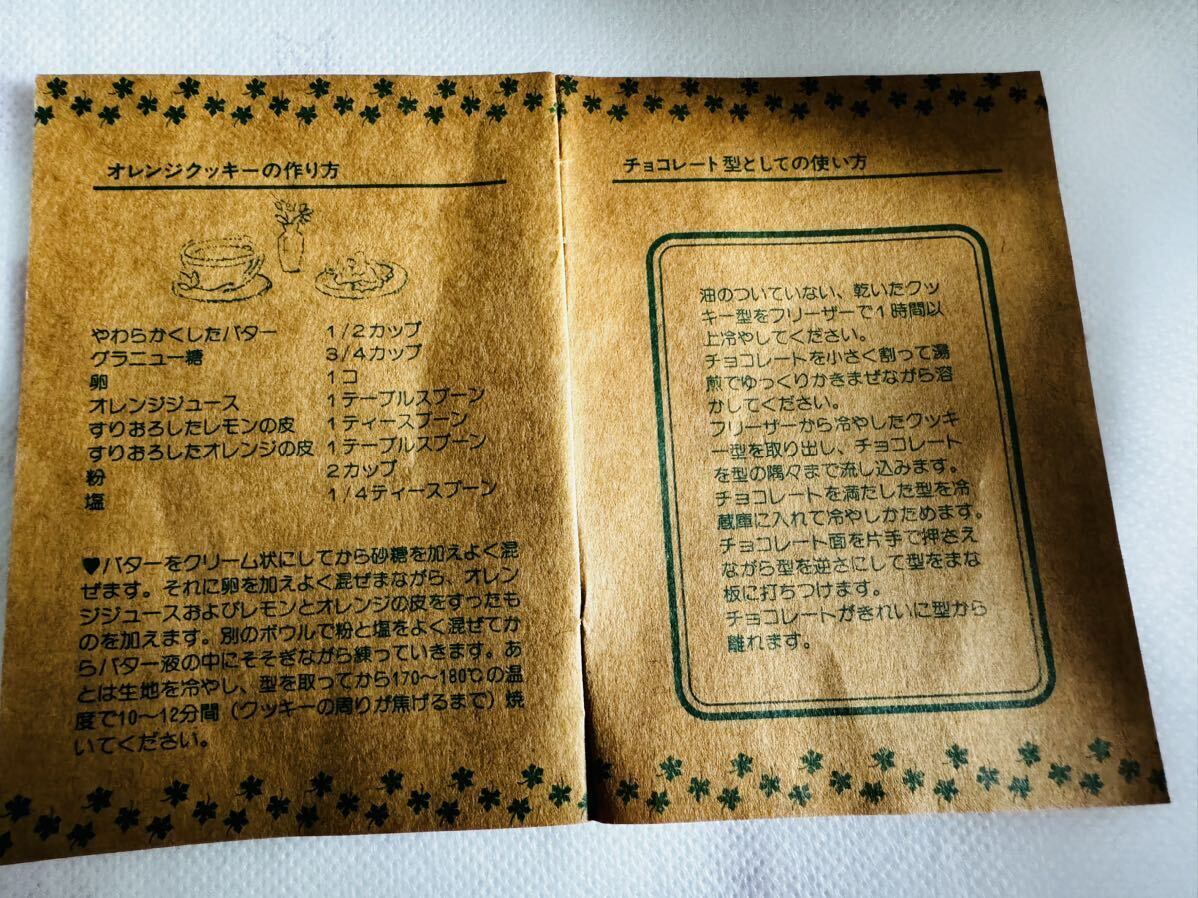 オレンジクッキーの作り方
やわらかくしたバター 1/2カップ
グラニュー糖 3/4カップ
卵 1コ
オレンジジュース 1テーブルスプーン
すりおろしたレモンの皮 1ティースプーン
すりおろしたオレンジの皮 1テーブルスプーン
粉 2カップ
塩 1/4ティースプーン
♥バターをクリーム状にしてから砂糖を加えよく混
ぜます。それに卵を加えよく混ぜまながら、オレン
ジジュースおよびレモンとオレンジの皮をすったも
のを加えます。別のボウルで粉と塩をよく混ぜてか
らバター液の中にそそぎながら練っていきます。あ
とは生地を冷やし、型を取ってから170〜180℃の温
度で10〜12分間（クッキーの周りが焦げるまで）焼
いてください。
チョコレート型としての使い方
油のついていない、乾いたクッ
キー型をフリーザーで1時間以
上冷やしてください。
チョコレートを小さく割って湯
煎でゆっくりかきまぜながら溶
かしてください。
フリーザーから冷やしたクッキ
ー型を取り出し、チョコレート
を型の隅々まで流し込みます。
チョコレートを満たした型を冷
蔵庫に入れて冷やしかためます。
チョコレート面を片手で押さえ
ながら型を逆さにして型をまな
板に打ちつけます。
チョコレートがきれいに型から
離れます。